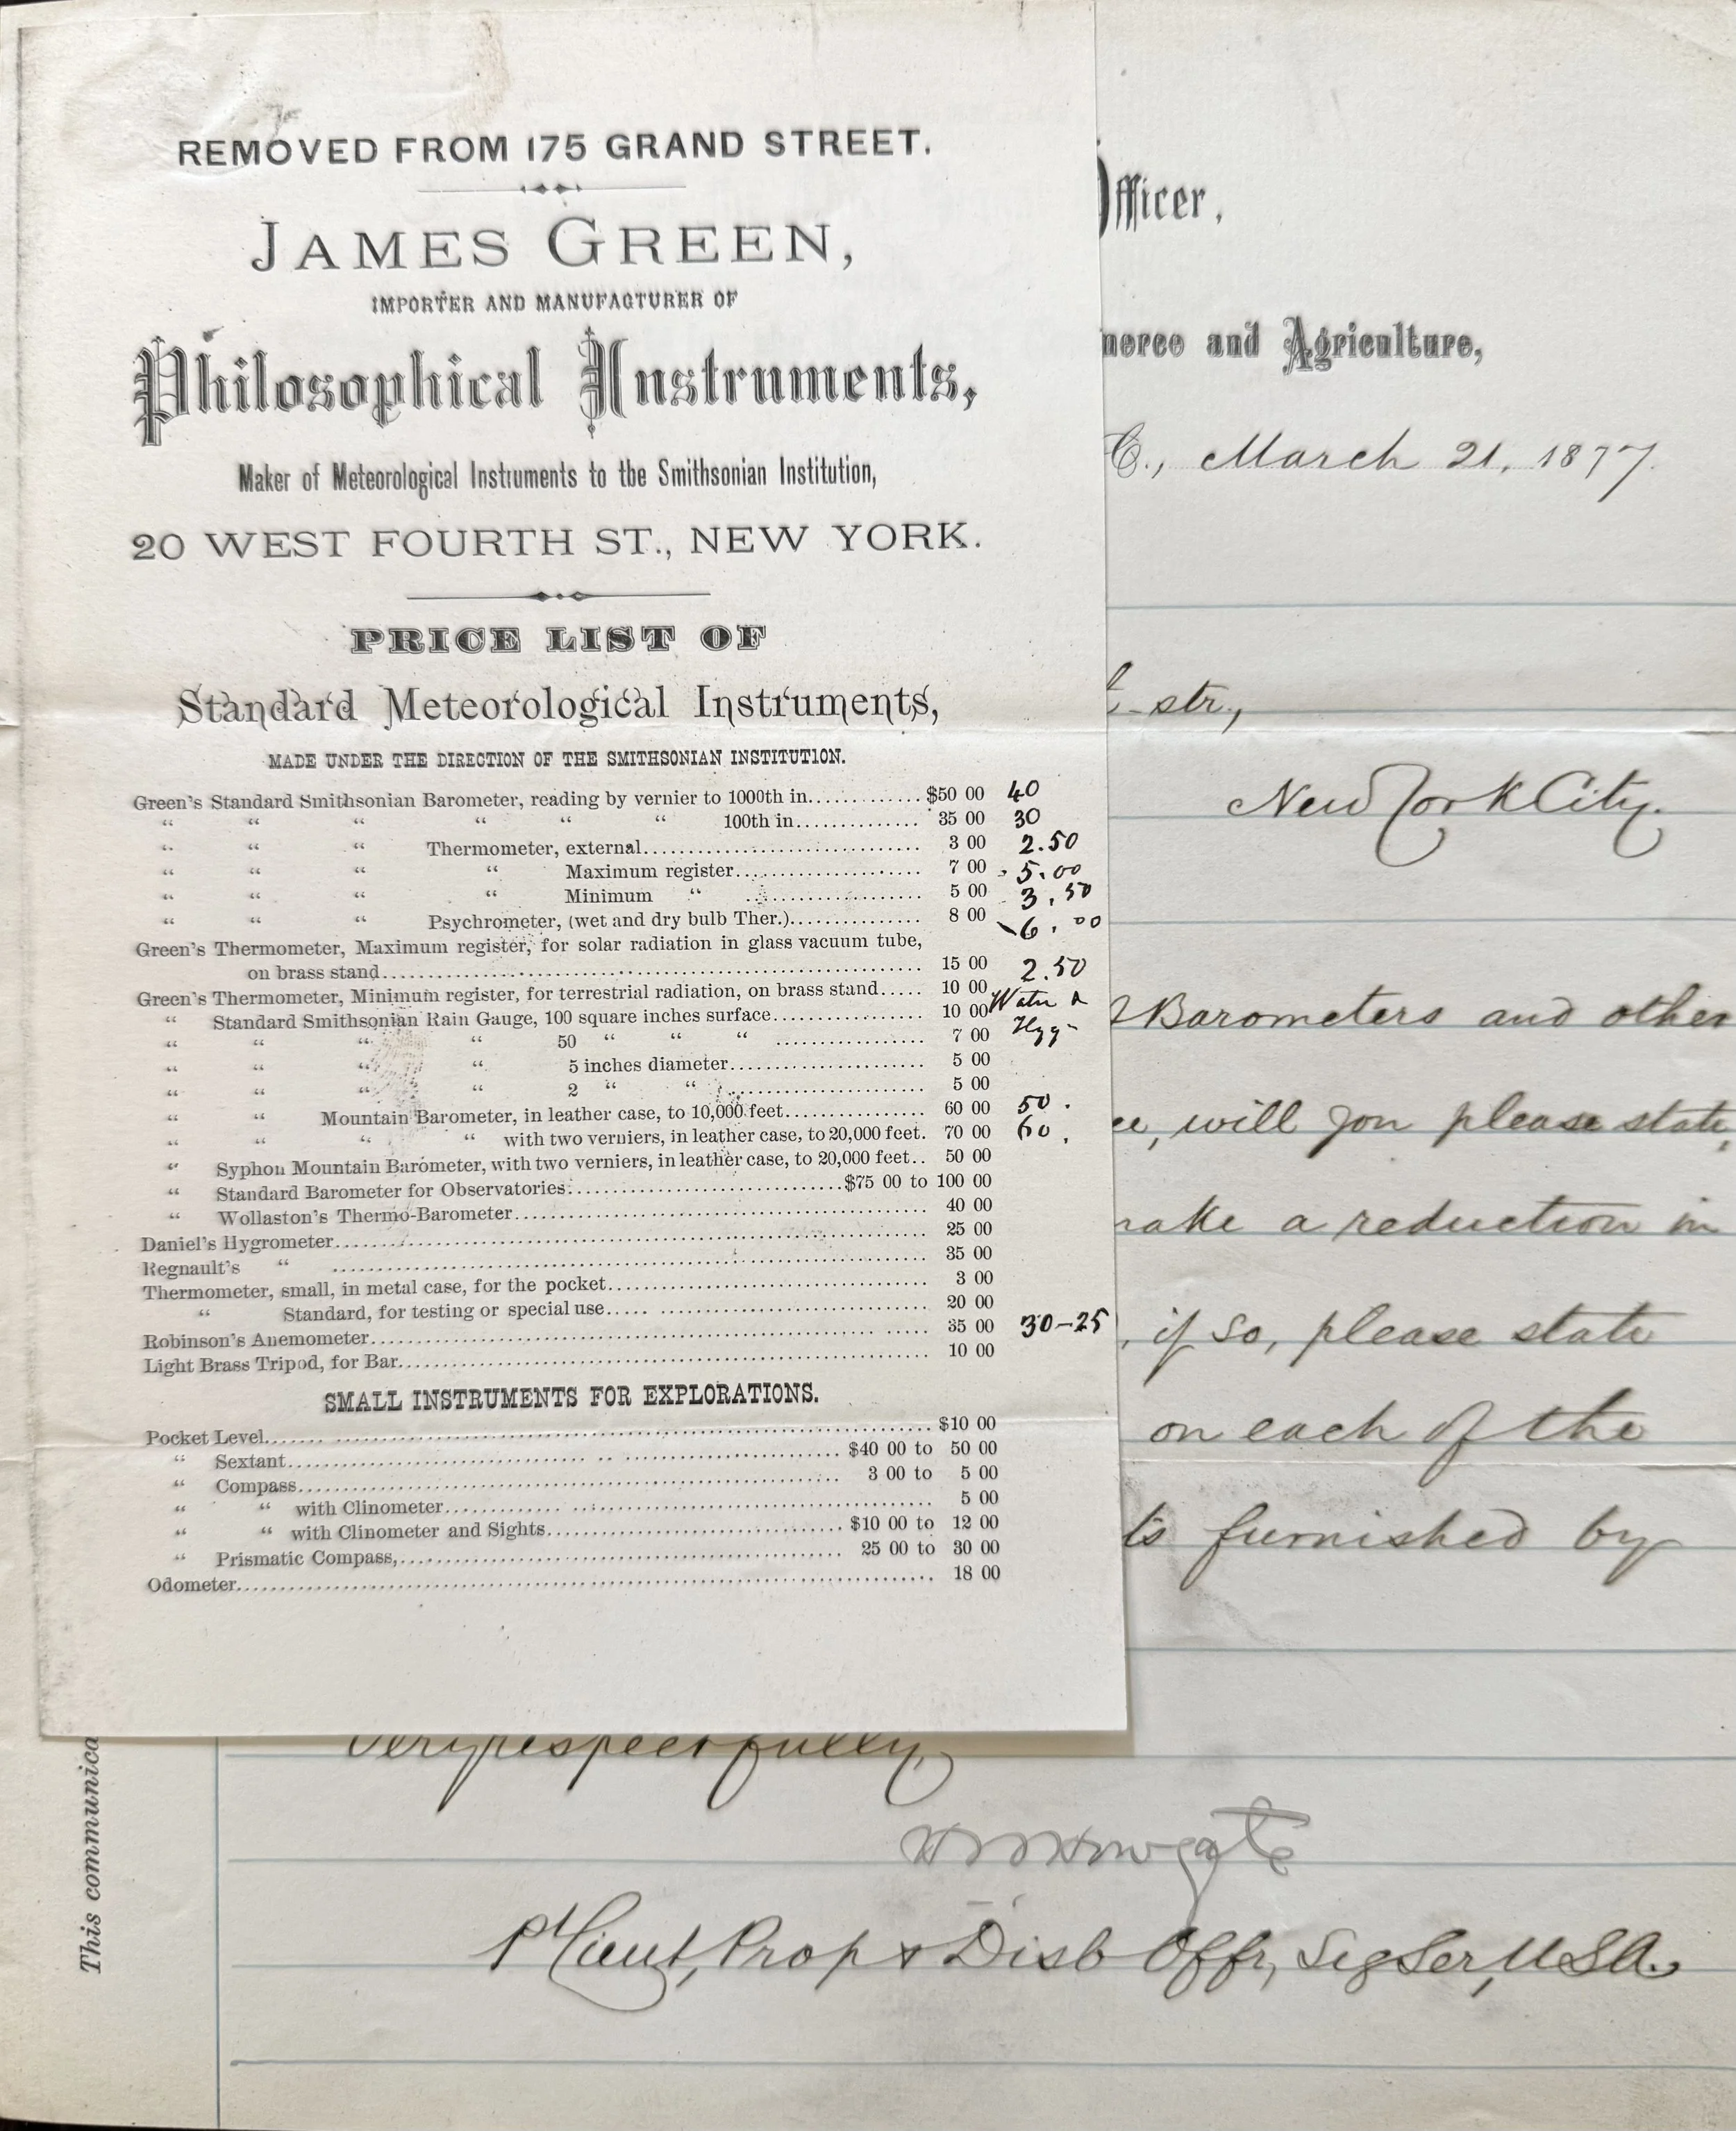 REMOVED FROM 175 GRAND STREET.
JAMES GREEN,
IMPORTER AND MANUFACTURER OF
Philosophical Instruments,
Maker of Meteorological Instruments to the Smithsonian Institution,
20 WEST FOURTH ST., NEW YORK.
PRICE LIST OF
Standard Meteorological Instruments,
MADE UNDER THE DIRECTION OF THE SMITHSONIAN INSTITUTION.
Green's Standard Smithsonian Barometer, reading by vernier to 1000th in............. $50 00 40
" " " " " " 100th in............... 35 00 30
" " " Thermometer, external................................ 3 00 2.50
" " " " Maximum register..................... 7 00 5.00
" " " " Minimum " ..................... 5 00 3.50
" " " Psychrometer, (wet and dry bulb Ther.)............... 8 00 6.00
Green's Thermometer, Maximum register, for solar radiation in glass vacuum tube,
on brass stand............................................................... 15 00 2.50
Green's Thermometer, Minimum register, for terrestrial radiation, on brass stand..... 10 00
" Standard Smithsonian Rain Gauge, 100 square inches surface................. 10 00
" " " " 50 " " " ................. 7 00
" " " " 5 inches diameter...................... 5 00
" " " " 2 " " ...................... 5 00
" " Mountain Barometer, in leather case, to 10,000 feet................ 60 00 50.
" " " " with two verniers, in leather case, to 20,000 feet. 70 00 60.
" Syphon Mountain Barometer, with two verniers, in leather case, to 20,000 feet.. 50 00
" Standard Barometer for Observatories................................$75 00 to 100 00
" Wollaston's Thermo-Barometer................................................ 40 00
Daniel's Hygrometer.................................................................. 25 00
Regnault's " .................................................................. 35 00
Thermometer, small, in metal case, for the pocket.................................... 3 00
" Standard, for testing or special use..................................... 20 00
Robinson's Anemometer................................................................ 35 00 30-25
Light Brass Tripod, for Bar.......................................................... 10 00
SMALL INSTRUMENTS FOR EXPLORATIONS.
Pocket Level.........................................................................$10 00
" Sextant.............................................................$40 00 to 50 00
" Compass............................................................. 3 00 to 5 00
" " with Clinometer................................................... 5 00
" " with Clinometer and Sights.................................$10 00 to 12 00
" Prismatic Compass,.................................................. 25 00 to 30 00
Odometer............................................................................. 18 00
Officer,
merce and Agriculture,
C., March 21, 1877.
str.,
New York City.
Barometers and other
will you please state,
make a reduction in
, if so, please state
on each of the
furnished by
Very respectfully,
Howgate
Lieut, Prop & Disb Offr, Sig Ser, USA.
This communica